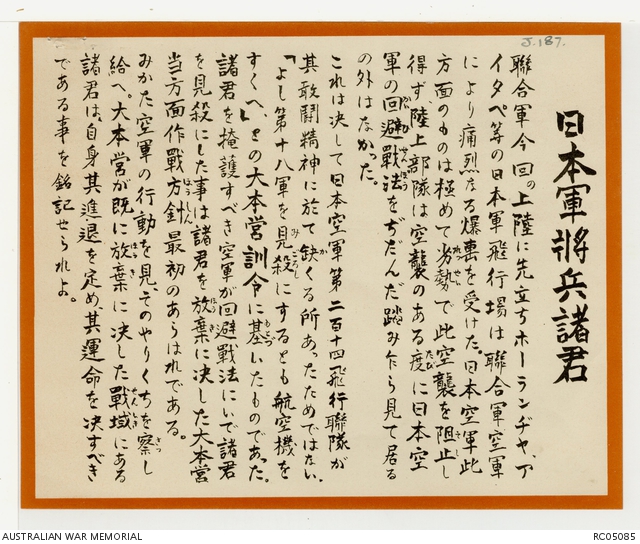 J.187.
日本軍將兵諸君
聯合軍今回の上陸に先立ちホーランヂャ、ア
イタペ等の日本軍飛行場は聯合軍空軍
により痛烈なる爆撃を受けた。日本空軍此
方面のものは極めて劣勢で此空襲を阻止し
得ず陸上部隊は空襲のある度に日本空
軍の回避戰法をぢだんだ踏み乍ら見て居る
の外はなかった。
これは決して日本空軍第二百十四飛行聯隊が
其敢鬪精神に於て缺くる所あったためではない。
「よし第十八軍を見殺にするとも航空機を
すくへ」との大本營訓令に基いたものであった。
諸君を掩護すべき空軍が回避戰法にいで諸君
を見殺にした事は諸君を放棄に決した大本營
当方面作戰方針最初のあらはれである。
みかた空軍の行動を見、そのやりくちを察し
給へ。大本營が既に放棄に決した戰域にある
諸君は、自身其進退を定め其運命を決すべき
である事を銘記せられよ。
AUSTRALIAN WAR MEMORIAL
RC05085